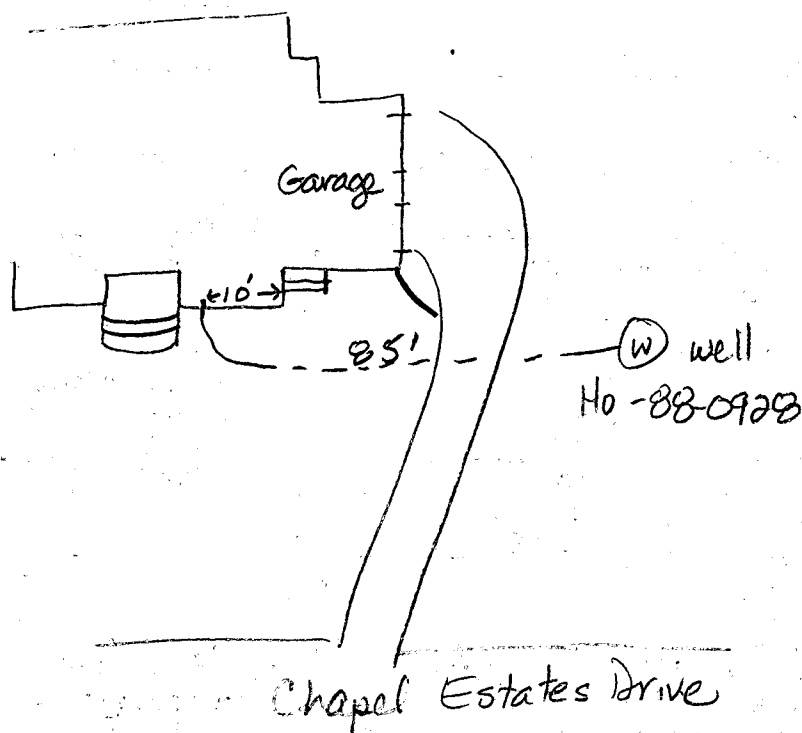 Garage
←10'→
85'
W well
Ho-88-0928
Chapel Estates Drive